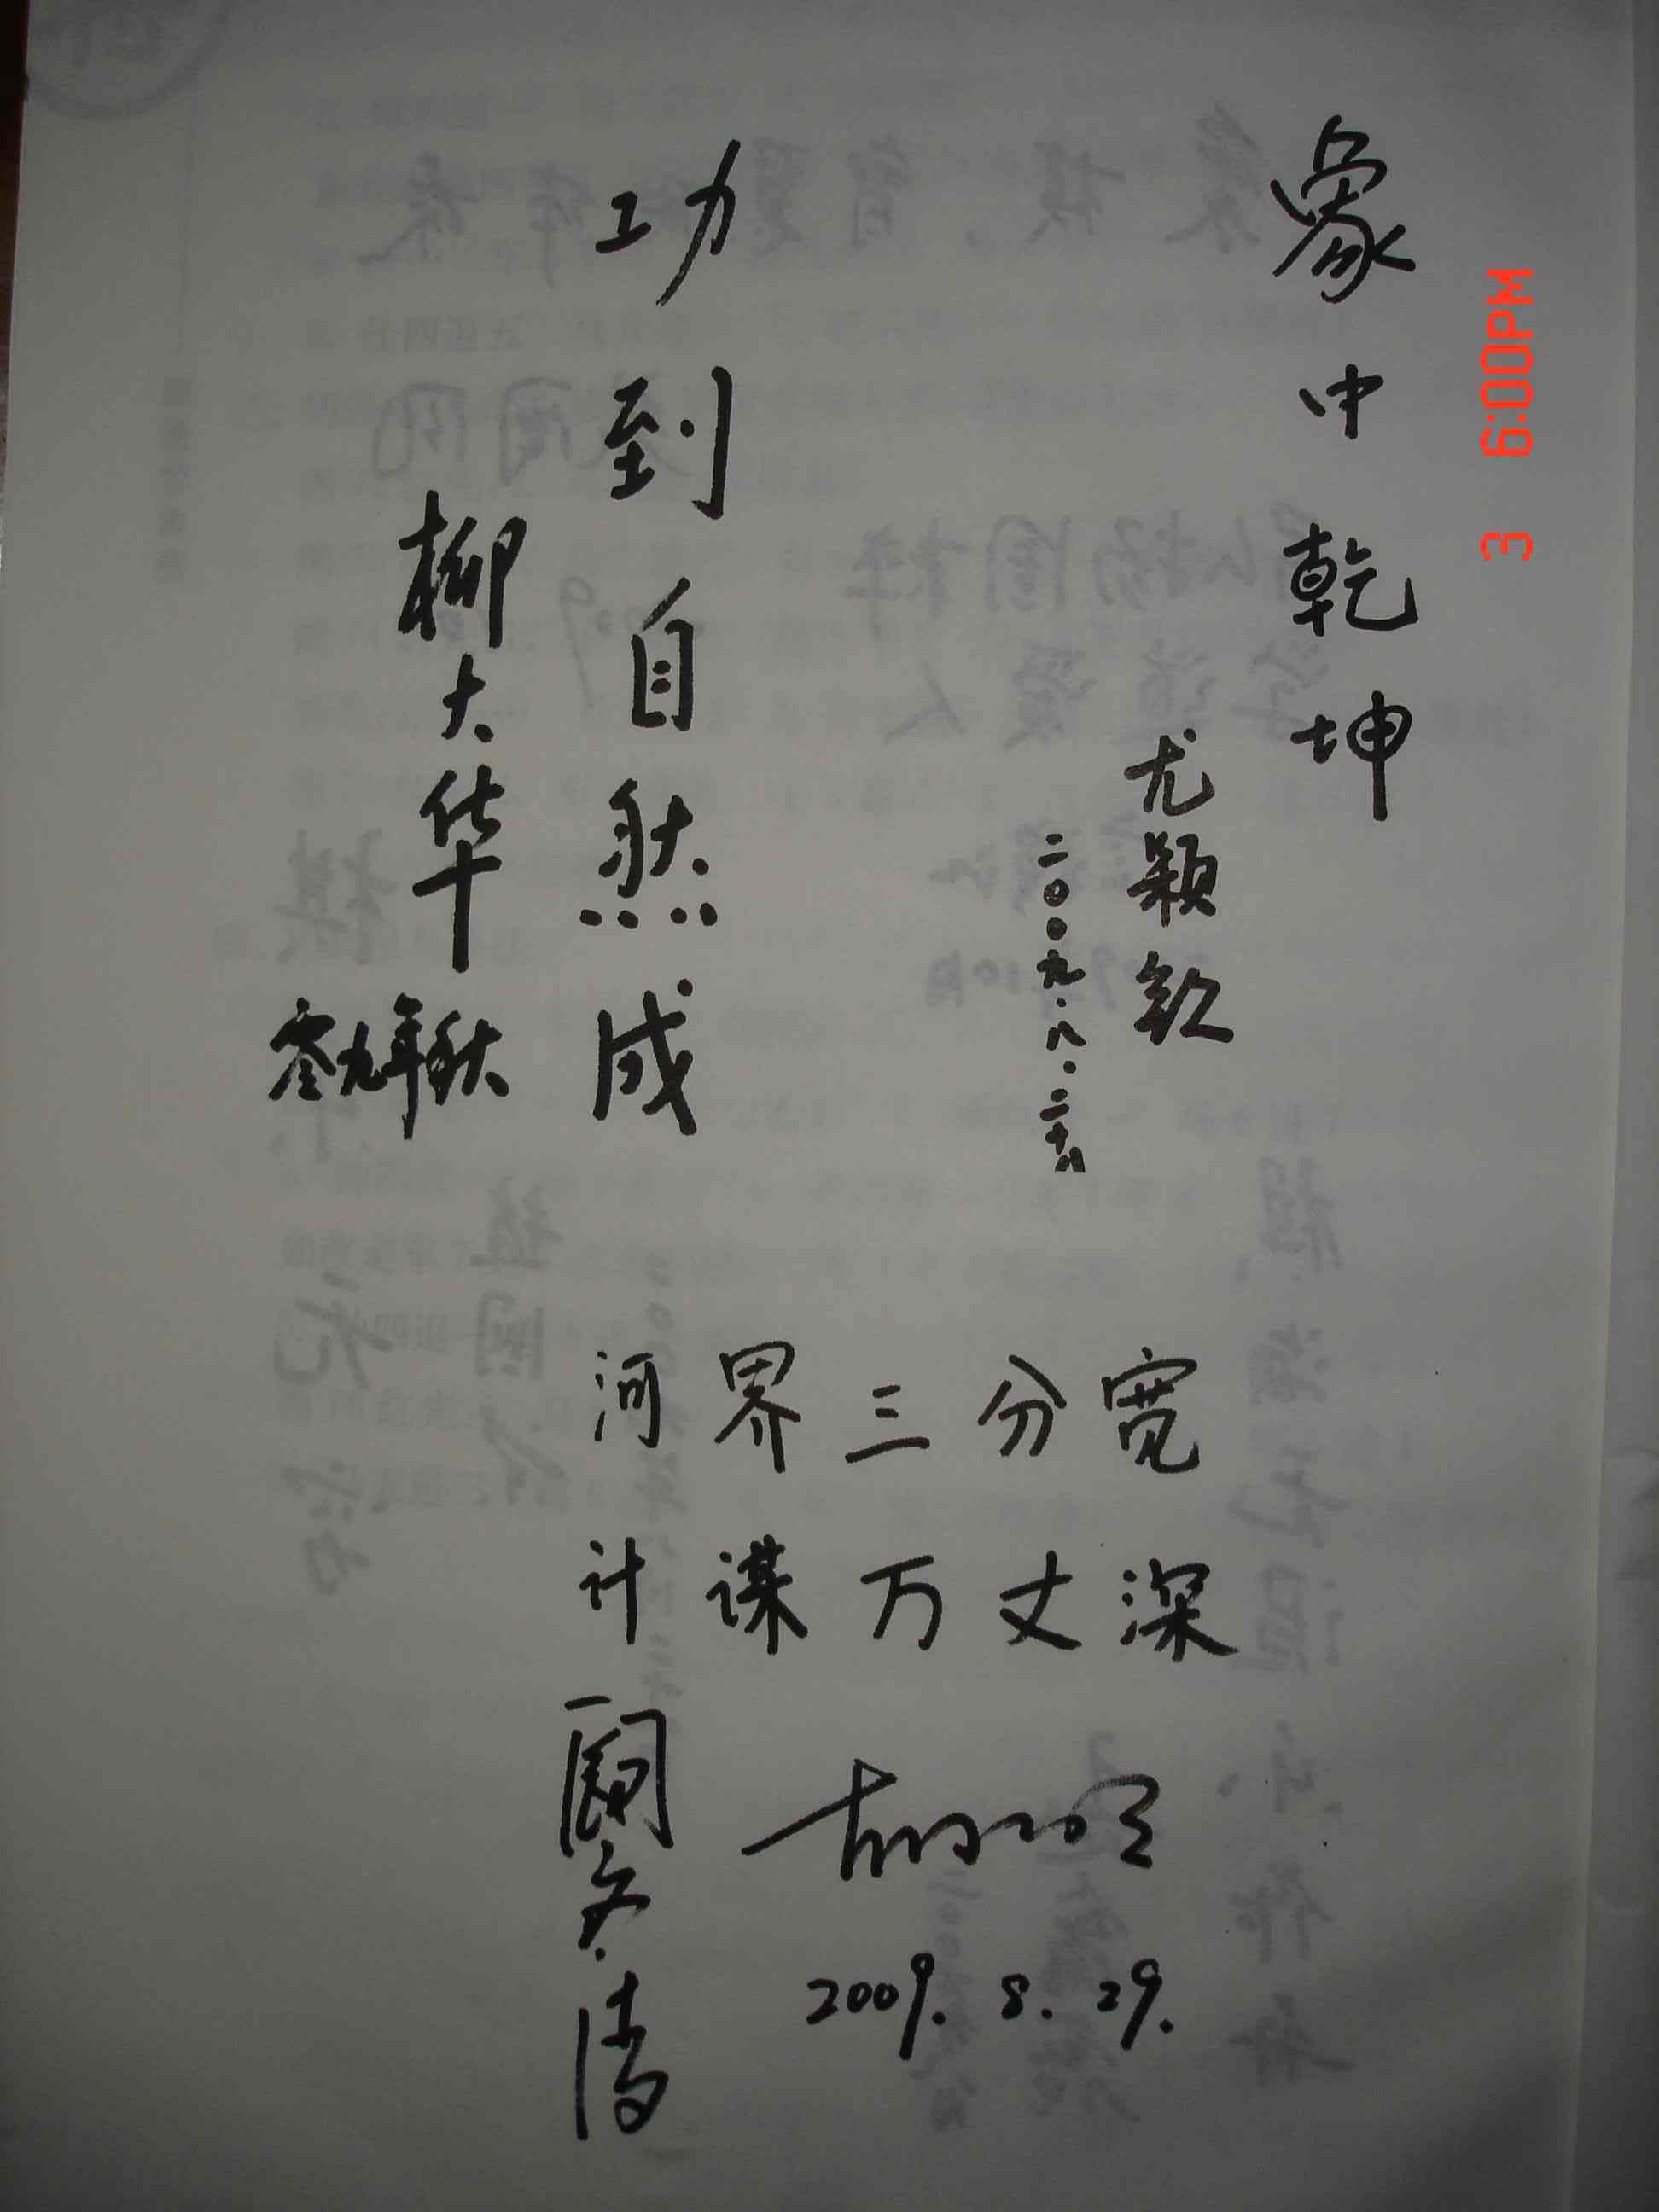 象中乾坤
尤颖钦
二〇〇九.八.二十八
功到自然成
柳大华
零九年秋
河界三分宽
计谋万丈深
阎文清
2009. 8. 29.
3 6:00PM